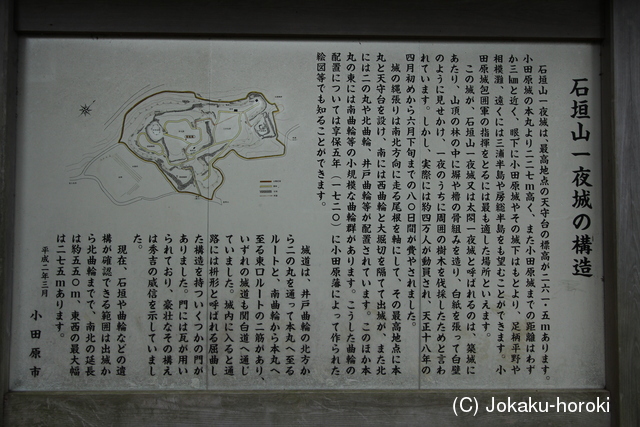 石垣山一夜城の構造
石垣山一夜城は、最高地点の天守台の標高が二六一・五mあります。
小田原城の本丸より二二七m高く、また小田原城までの距離はわず
か三kmと近く、眼下に小田原城やその城下はもとより、足柄平野や
相模灘、遠くには三浦半島や房総半島をも望むことができます。小
田原城包囲軍の指揮をとるには最も適した場所といえます。
この城が、石垣山一夜城又は太閤一夜城と呼ばれるのは、築城に
あたり、山頂の林の中に塀や櫓の骨組みを造り、白紙を張って白壁
のように見せかけ、一夜のうちに周囲の樹木を伐採したためと言わ
れています。しかし、実際には約四万人が動員され、天正十八年の
四月初めから六月下旬までの八〇日間が費やされました。
城の縄張りは南北方向に走る尾根を軸にして、その最高地点に本
丸と天守台を設け、南には西曲輪と大堀切を隔てて出城が、また北
には二の丸や北曲輪、井戸曲輪等が配置されています。このほか本
丸の東には南曲輪等の小規模な曲輪群があります。こうした曲輪の
配置については享保五年（一七二〇）に小田原藩によって作られた
絵図等でも知ることができます。
城道は、井戸曲輪の北方か
ら二の丸を通って本丸へ至る
ルートと、南曲輪から本丸へ
至る東口ルートの二筋があり、
いずれの城道も関白道へ通じ
ていました。城内に入ると通
路には枡形と呼ばれる屈曲し
た構造を持ついくつかの門が
ありました。門には瓦が用い
られており、豪壮なその構え
は秀吉の威信を示していまし
た。
現在、石垣や曲輪などの遺
構が確認できる範囲は出城か
ら北曲輪までで、南北の延長
は約五五〇m、東西の最大幅
は二七五mあります。
平成二年三月　小田原市
(C) Jokaku-horoki